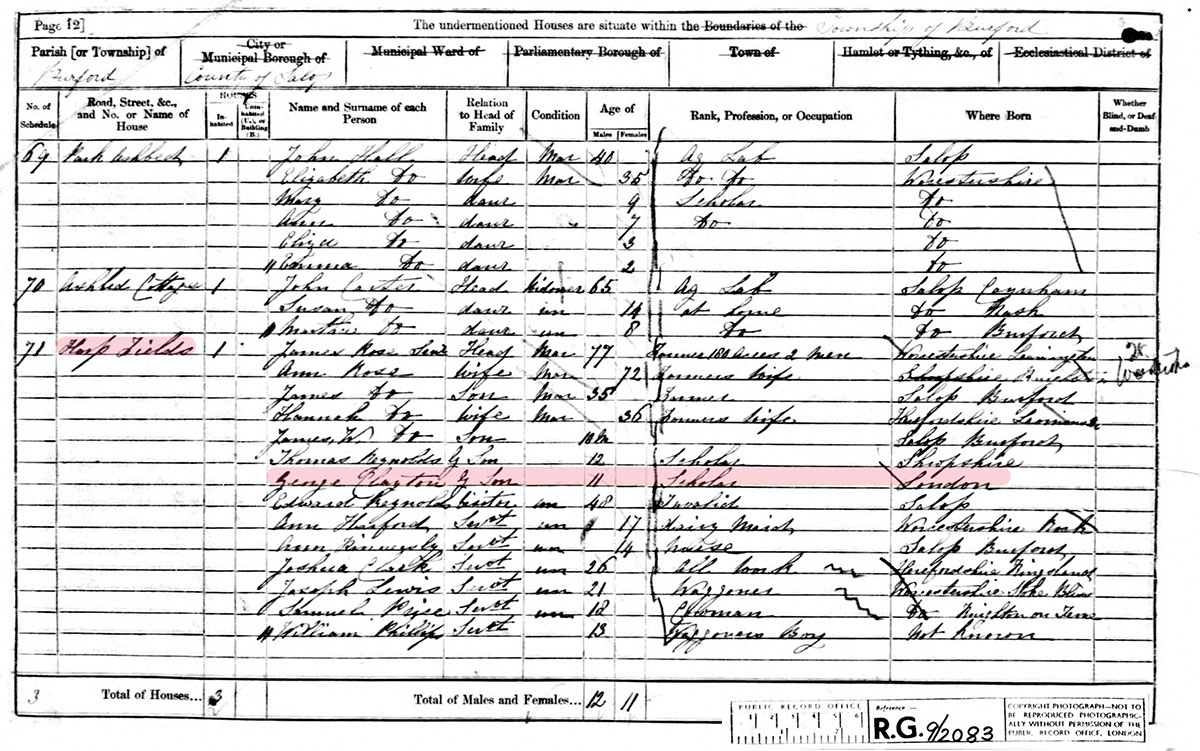 Page 12]
The undermentioned Houses are situate within the Boundaries of the Township of Burford
Parish [or Township] of
Burford
City or
Municipal Borough of
County of Salop
Municipal Ward of
Parliamentary Borough of
Town of
Hamlet or Tything, &c., of
Ecclesiastical District of
No. of Schedule
Road, Street, &c., and No. or Name of House
HOUSES
Inhabited
Uninhabited (U.), or Building (B.)
Name and Surname of each Person
Relation to Head of Family
Condition
Age of
Males
Females
Rank, Profession, or Occupation
Where Born
Whether Blind, or Deaf-and-Dumb
69 Park Ashbed 1 John Hall Head Mar 40 Ag Lab Salop
Elizabeth Do Wife Mar 35 Do Do Worcestershire
Mary Do daur 9 Scholar Do
Ann Do daur 7 Do Do
Eliza Do daur 3 Do
Emma Do daur 2 Do
70 Ashbed Cottage 1 John Carter Head Widower 65 Ag Lab Salop Caynham
Susan Do daur un 14 at home Do Nash
Martha Do daur un 8 Do Do Burford
71 Harp Fields 1 James Rose Head Mar 77 Farmer 180 Acres 2 Men Worcestershire
Ann Rose Wife Mar 72 Farmers Wife Shropshire
James Do Son Mar 35 Farmer Salop Burford
Hannah Do Wife Mar 36 Farmers Wife Herefordshire Leominster
James W Do Son 10 M Salop Burford
Thomas Reynolds G Son 12 Scholar Shropshire
George Clayton G Son 11 Scholar London
Edward Reynolds Visitor un 48 Invalid Salop
Ann Harford Servt un 17 Dairy Maid Worcestershire
Ann Servt un 14 Nurse Salop Burford
Joshua Clark Servt un 26 All Work Herefordshire Kingsland
Joseph Lewis Servt un 21 Waggoner Worcestershire Stoke Bliss
Samuel Price Servt un 18 Cowman Do Knighton on Teme
William Phillips Servt 13 Waggoners Boy Not Known
3 Total of Houses... 3 Total of Males and Females... 12 11
PUBLIC RECORD OFFICE
1 2 3 4 5 6
Reference :-
R.G. 9/2083
COPYRIGHT PHOTOGRAPH—NOT TO
BE REPRODUCED PHOTOGRAPHIC-
ALLY WITHOUT PERMISSION OF THE
PUBLIC RECORD OFFICE, LONDON